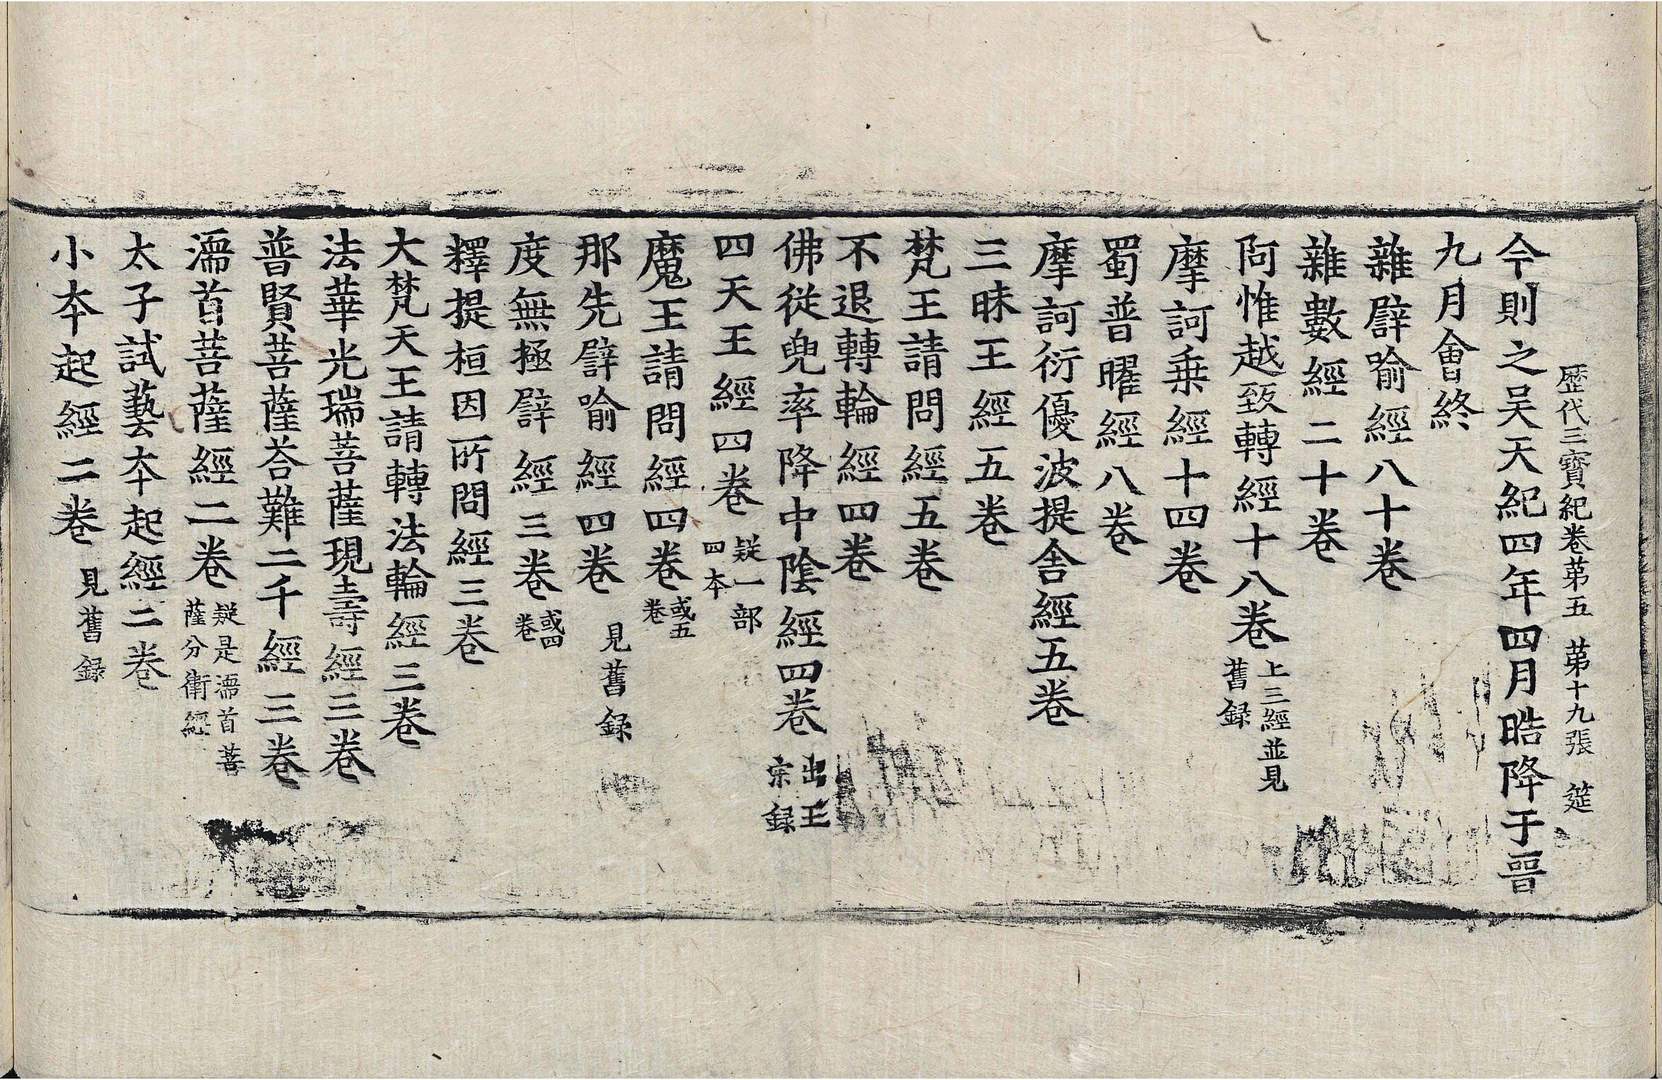 歷代三寶紀卷第五　第十九張　筵
今則之吳天紀四年四月晧降于晉
九月會終
雜譬喻經八十卷
雜數經二十卷
阿惟越致轉經十八卷 上三經並見舊録
摩訶乗經十四卷
蜀普曜經八卷
摩訶衍優波提舍經五卷
三昧王經五卷
梵王請問經五卷
不退轉輪經四卷
佛從兜率降中陰經四卷 出王宗録
四天王經四卷 疑一部四本
魔王請問經四卷 或五卷
那先譬喻經四卷 見舊録
度無極譬經三卷 或四卷
釋提桓因所問經三卷
大梵天王請轉法輪經三卷
法華光瑞菩薩現壽經三卷
普賢菩薩荅難二千經三卷
濡首菩薩經二卷 疑是濡首菩薩分衛經
太子試藝夲起經二卷
小夲起經二卷 見舊録